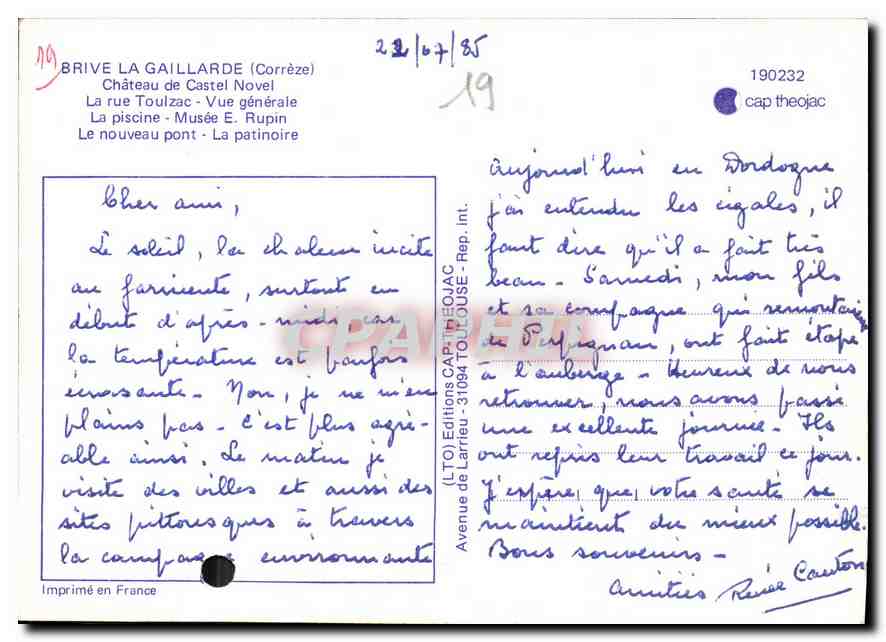 19
22/07/85
19
BRIVE LA GAILLARDE (Corrèze)
Château de Castel Novel
La rue Toulzac - Vue générale
La piscine - Musée E. Rupin
Le nouveau pont - La patinoire
190232
cap theojac
Cher ami,
Le soleil, la chaleur incite
au farniente, surtout en
début d'après-midi car
la température est parfois
écrasante - Non, je ne m'en
plains pas - C'est plus agré-
able ainsi. Le matin je
visite des villes et aussi des
sites pittoresques à travers
la campagne environnante
Imprimé en France
(LTO) Editions CAP-THEOJAC
Avenue de Larrieu - 31094 TOULOUSE - Rep. int.
Aujourd'hui en Dordogne
j'ai entendu les cigales, il
faut dire qu'il a fait très
beau - Samedi, mon fils
et sa compagne qui remontaient
de Perpignan, ont fait étape
à l'auberge - Heureux de nous
retrouver, nous avons passé
une excellente journée - Ils
ont repris leur travail ce jour.
J'espère, que, votre santé se
maintient du mieux possible.
Bons souvenirs -
Amitiés Renée
CPARAMA